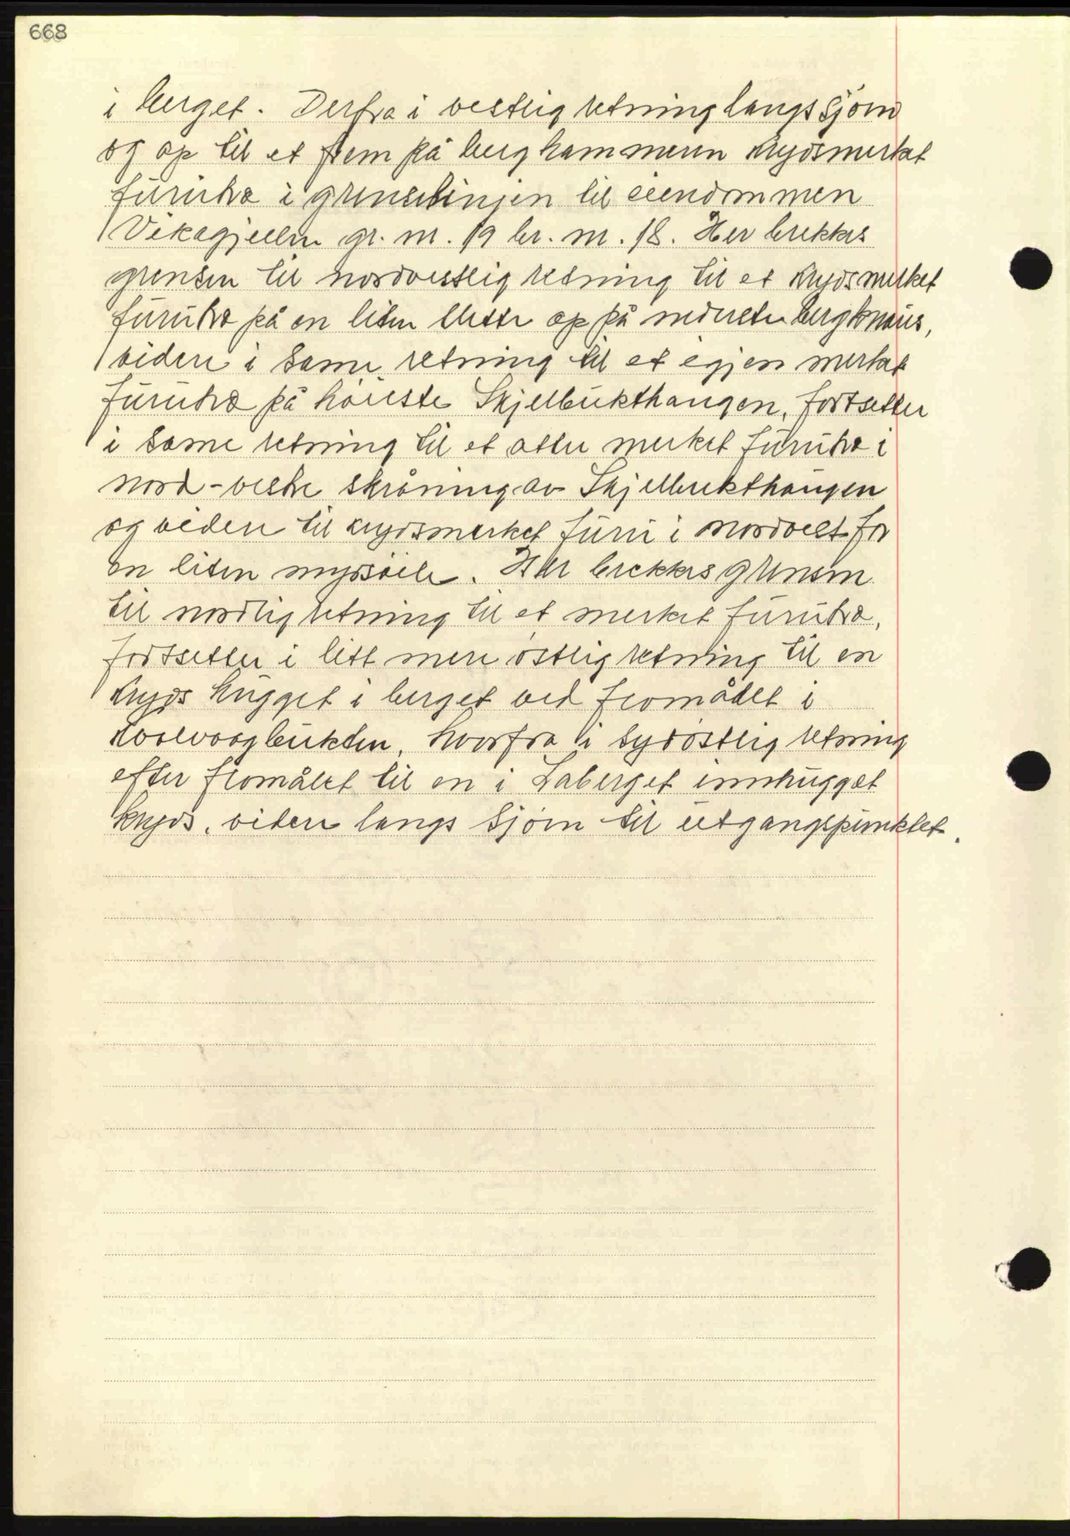 668
i berget. Derfra i vestlig retning langs sjøen
og op til et frem på berghammeren krydsmerket
furutræ i grenselinjen til eiendommen
Vikagjeelen gr. nr. 19 br. nr. 18. Her brekkes
grensen til nordvestlig retning til et krydsmerket
furutræ på en liten slette op på nederste bergknaus,
videre i same retning til et igjen merket
furutræ på høieste Skjelbukthaugen, fortsetter
i same retning til et atter merket furutræ i
nord-vestre skråning av Skjelbukthaugen
og videre til krydsmerket furu i nordvest for
en liten myrsøile. Her brekkes grensen
til nordlig retning til et merket furutræ,
fortsetter i litt mere østlig retning til en
kryds hugget i berget ved flomålet i
bukten, hvorfra i sydøstlig retning
efter flomålet til en i Laberget innhugget
kryds, videre langs sjøen til utgangspunktet.